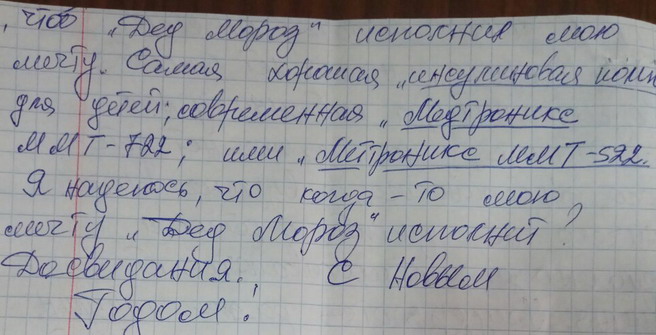 , чтоб „Дед Мороз“ исполнил мою
мечту. Самая хорошая „инсулиновая помп
для детей; современная „Медтроникс
ММТ-722; или „Меттроникс ММТ-522.
Я надеюсь, что когда-то мою
мечту „Дед Мороз“ исполнит?
Досвидания. С Новым
Годом!